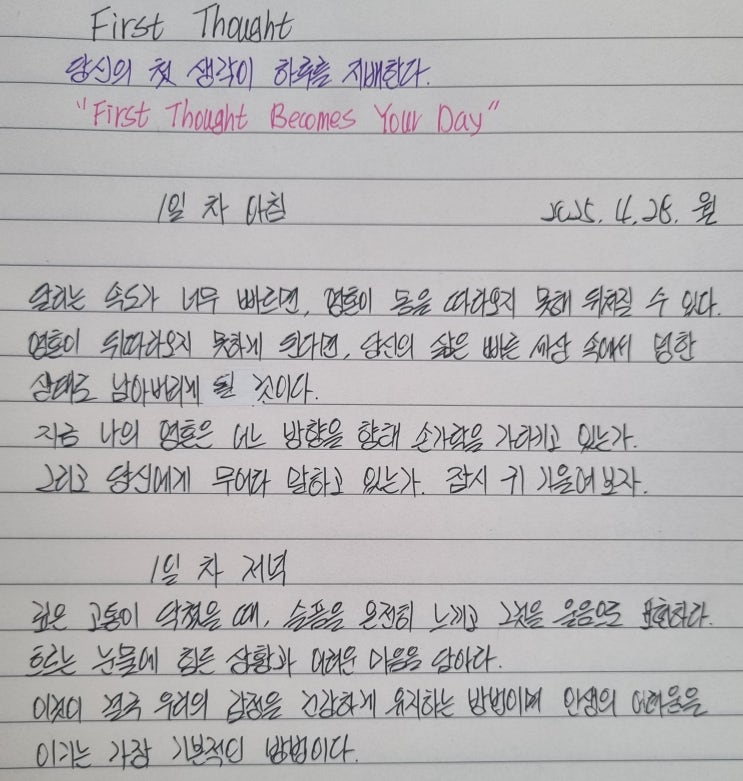 First Thought
당신의 첫 생각이 하루를 지배한다.
"First Thought Becomes Your Day"
1일 차 아침 2025. 4. 28. 월
달리는 속도가 너무 빠르면, 영혼이 몸을 따라오지 못해 뒤처질 수 있다.
영혼이 뒤따라오지 못하게 된다면, 당신의 삶은 빠른 세상 속에서 텅한
상태로 남아버리게 될 것이다.
지금 나의 영혼은 어느 방향을 향해 손가락을 가리키고 있는가.
그리고 당신에게 무어라 말하고 있는가. 잠시 귀 기울여 보자.
1일 차 저녁
깊은 고통이 닥쳤을 때, 슬픔을 온전히 느끼고 그것을 울음으로 표현하라.
흐르는 눈물에 힘든 상황과 어려운 마음을 담아라.
이것이 결국 우리의 감정을 건강하게 유지하는 방법이며 인생의 어려움을
이기는 가장 기본적인 방법이다.